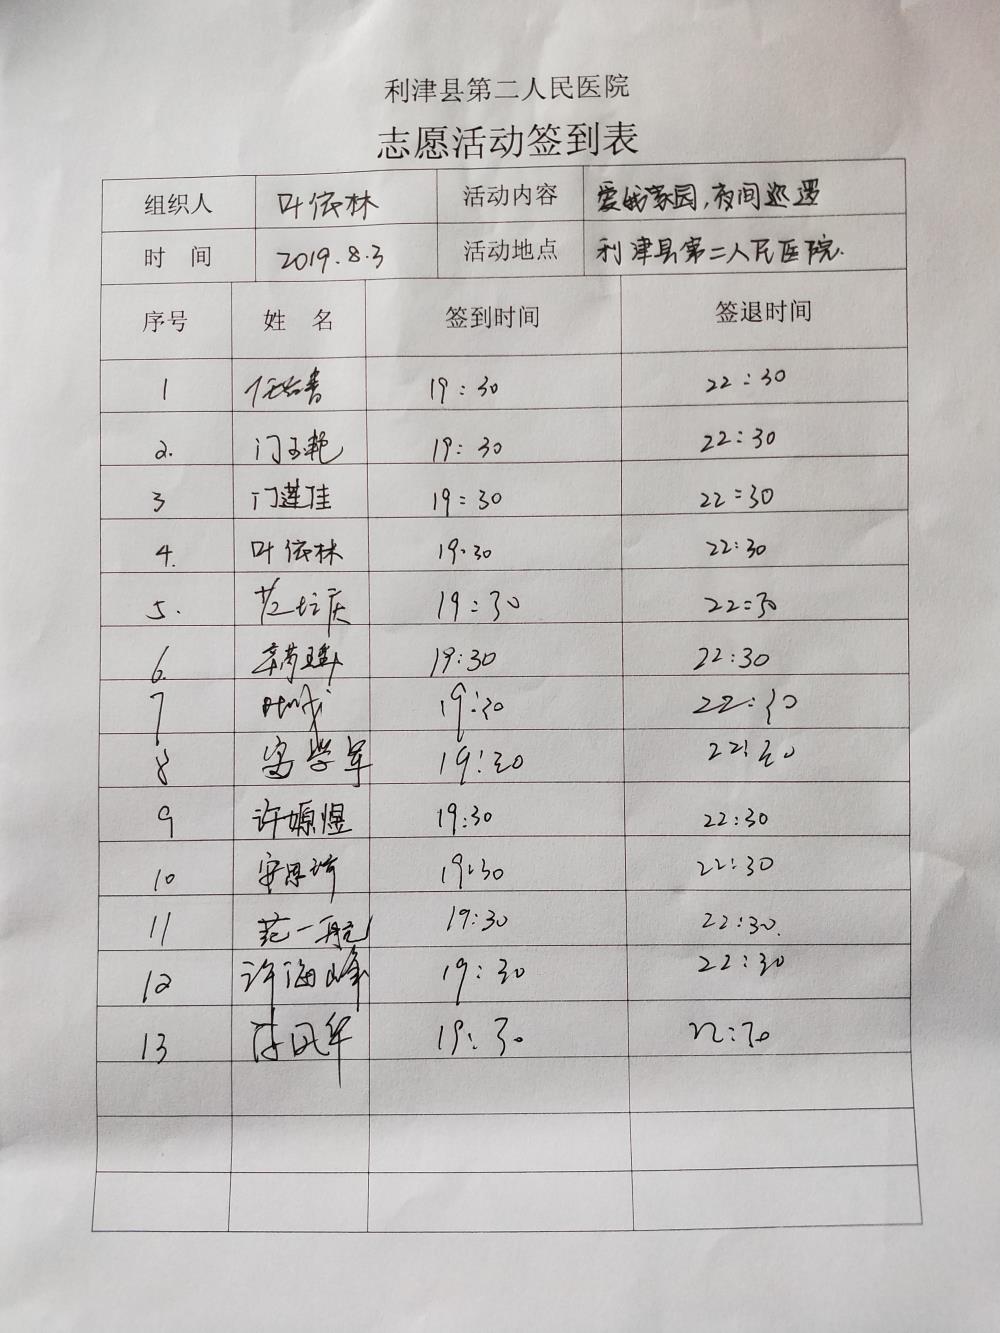 利津县第二人民医院
志愿活动签到表
组织人 叶依林 活动内容 爱我家园,夜间巡逻
时 间 2019.8.3 活动地点 利津县第二人民医院.
序号 姓 名 签到时间 签退时间
1 19:30 22:30
2. 门玉艳 19:30 22:30
3 门莲佳 19:30 22:30
4. 叶依林 19:30 22:30
5. 19:30 22:30
6. 19:30 22:30
7 19:30 22:30
8 学军 19:30 22:30
9 许嫄煜 19:30 22:30
10 19:30 22:30
11 范一航 19:30 22:30.
12 许海峰 19:30 22:30
13 19:30 22:30